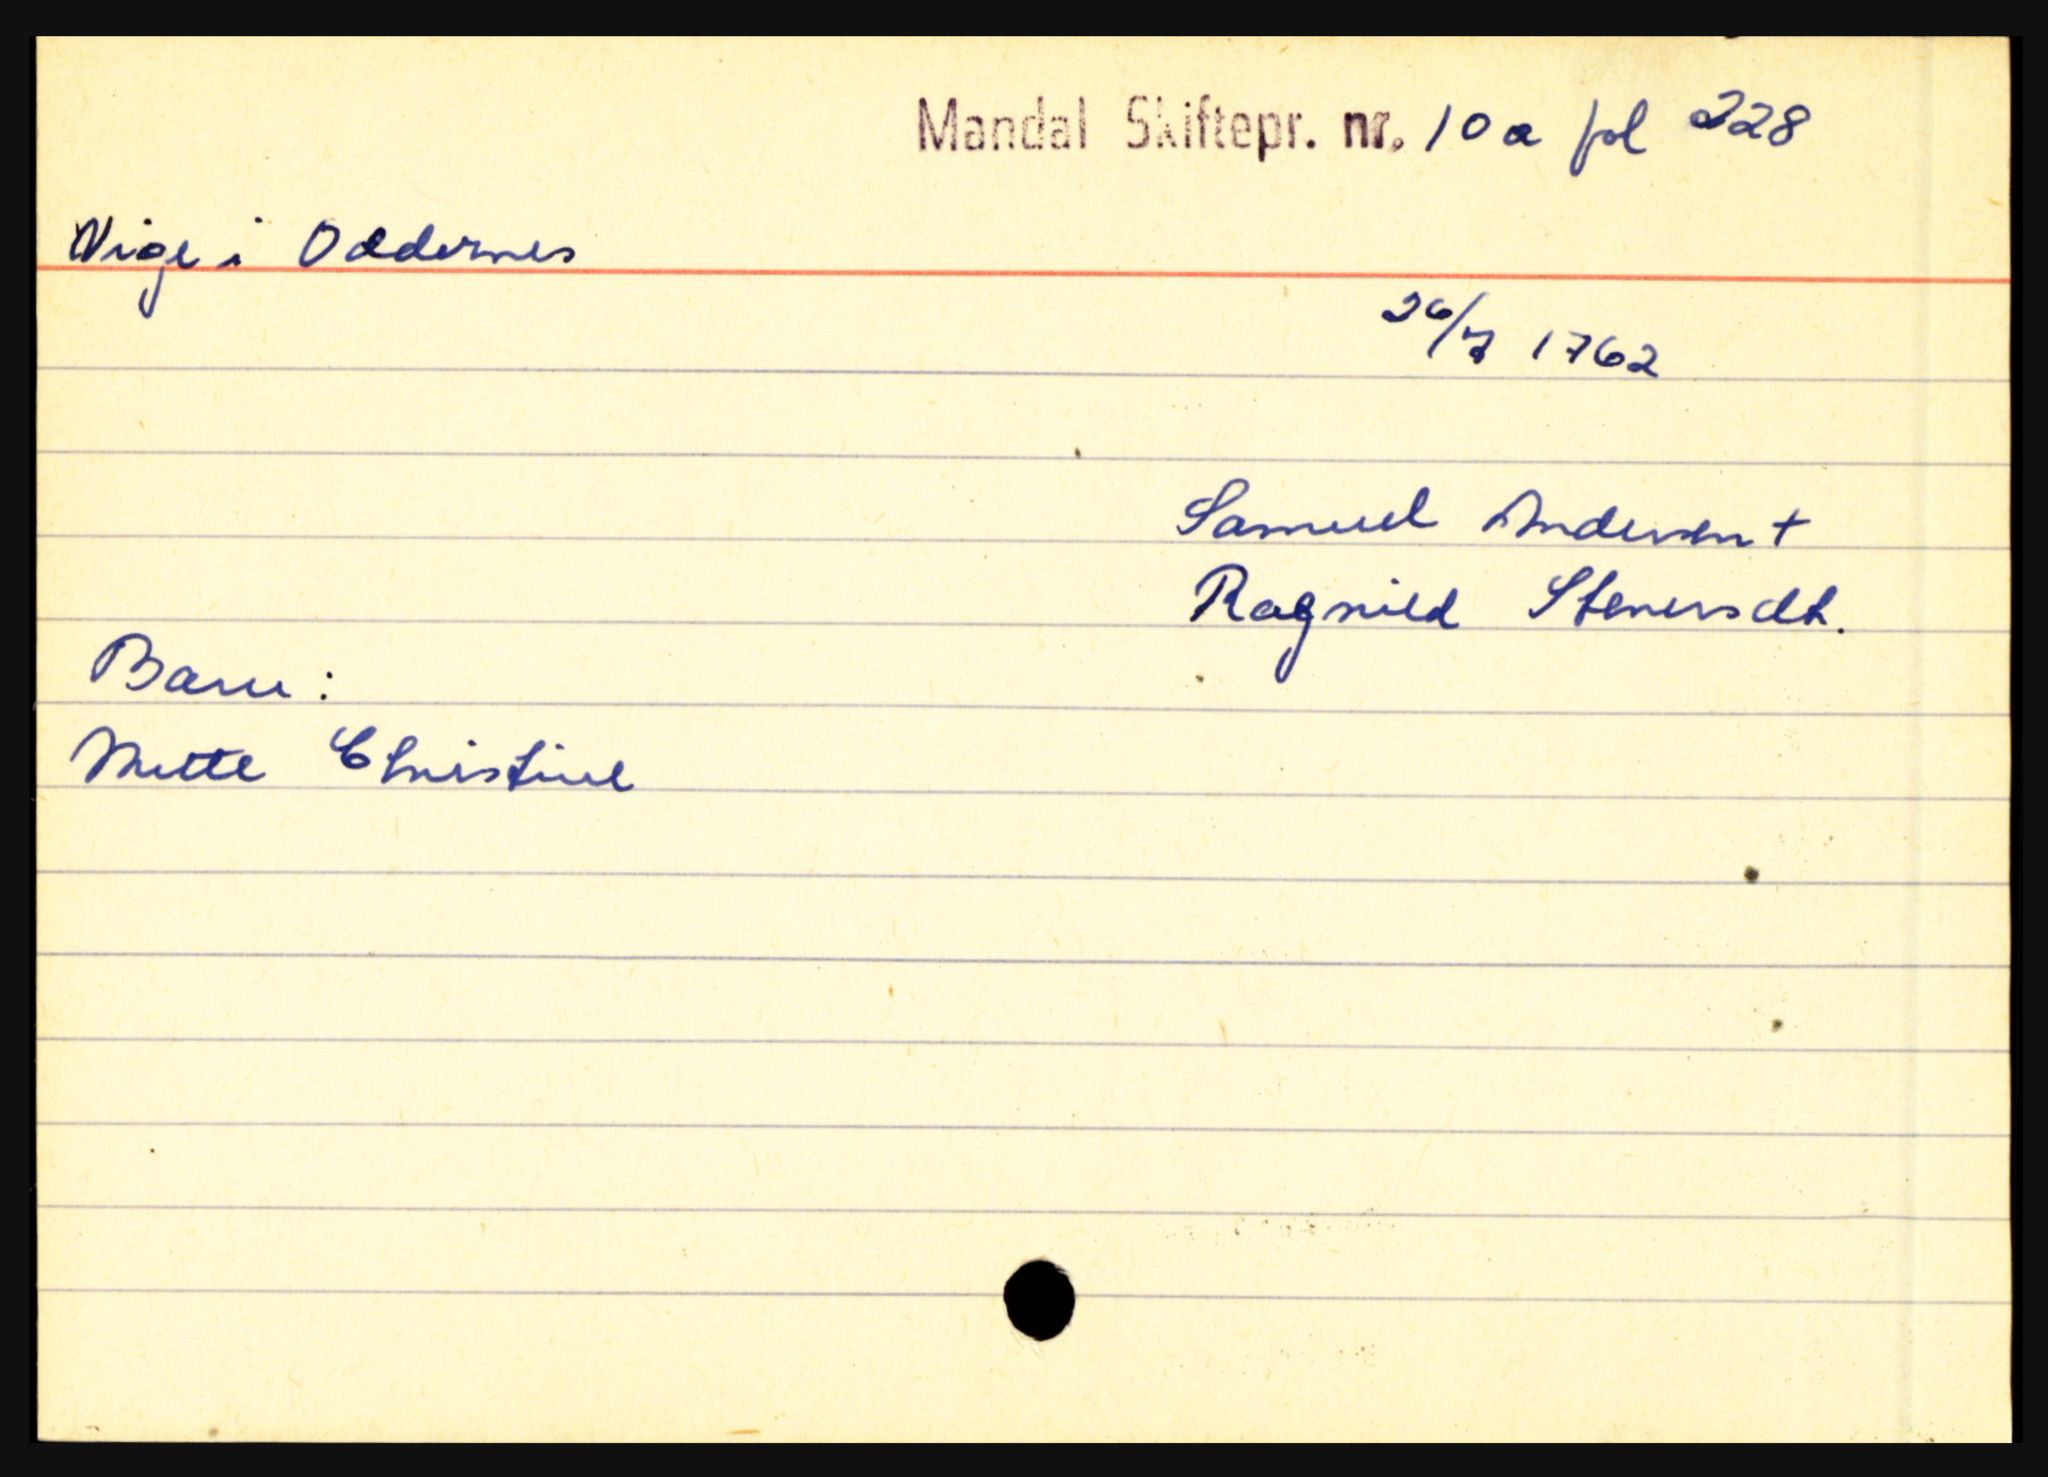 Mandal Skiftepr. nr. 10 a fol 228
Vige i Oddernes
26/7 1762
Samuel Andersen +
Ragnild Stenersdt.
Barn:
Mette Christine